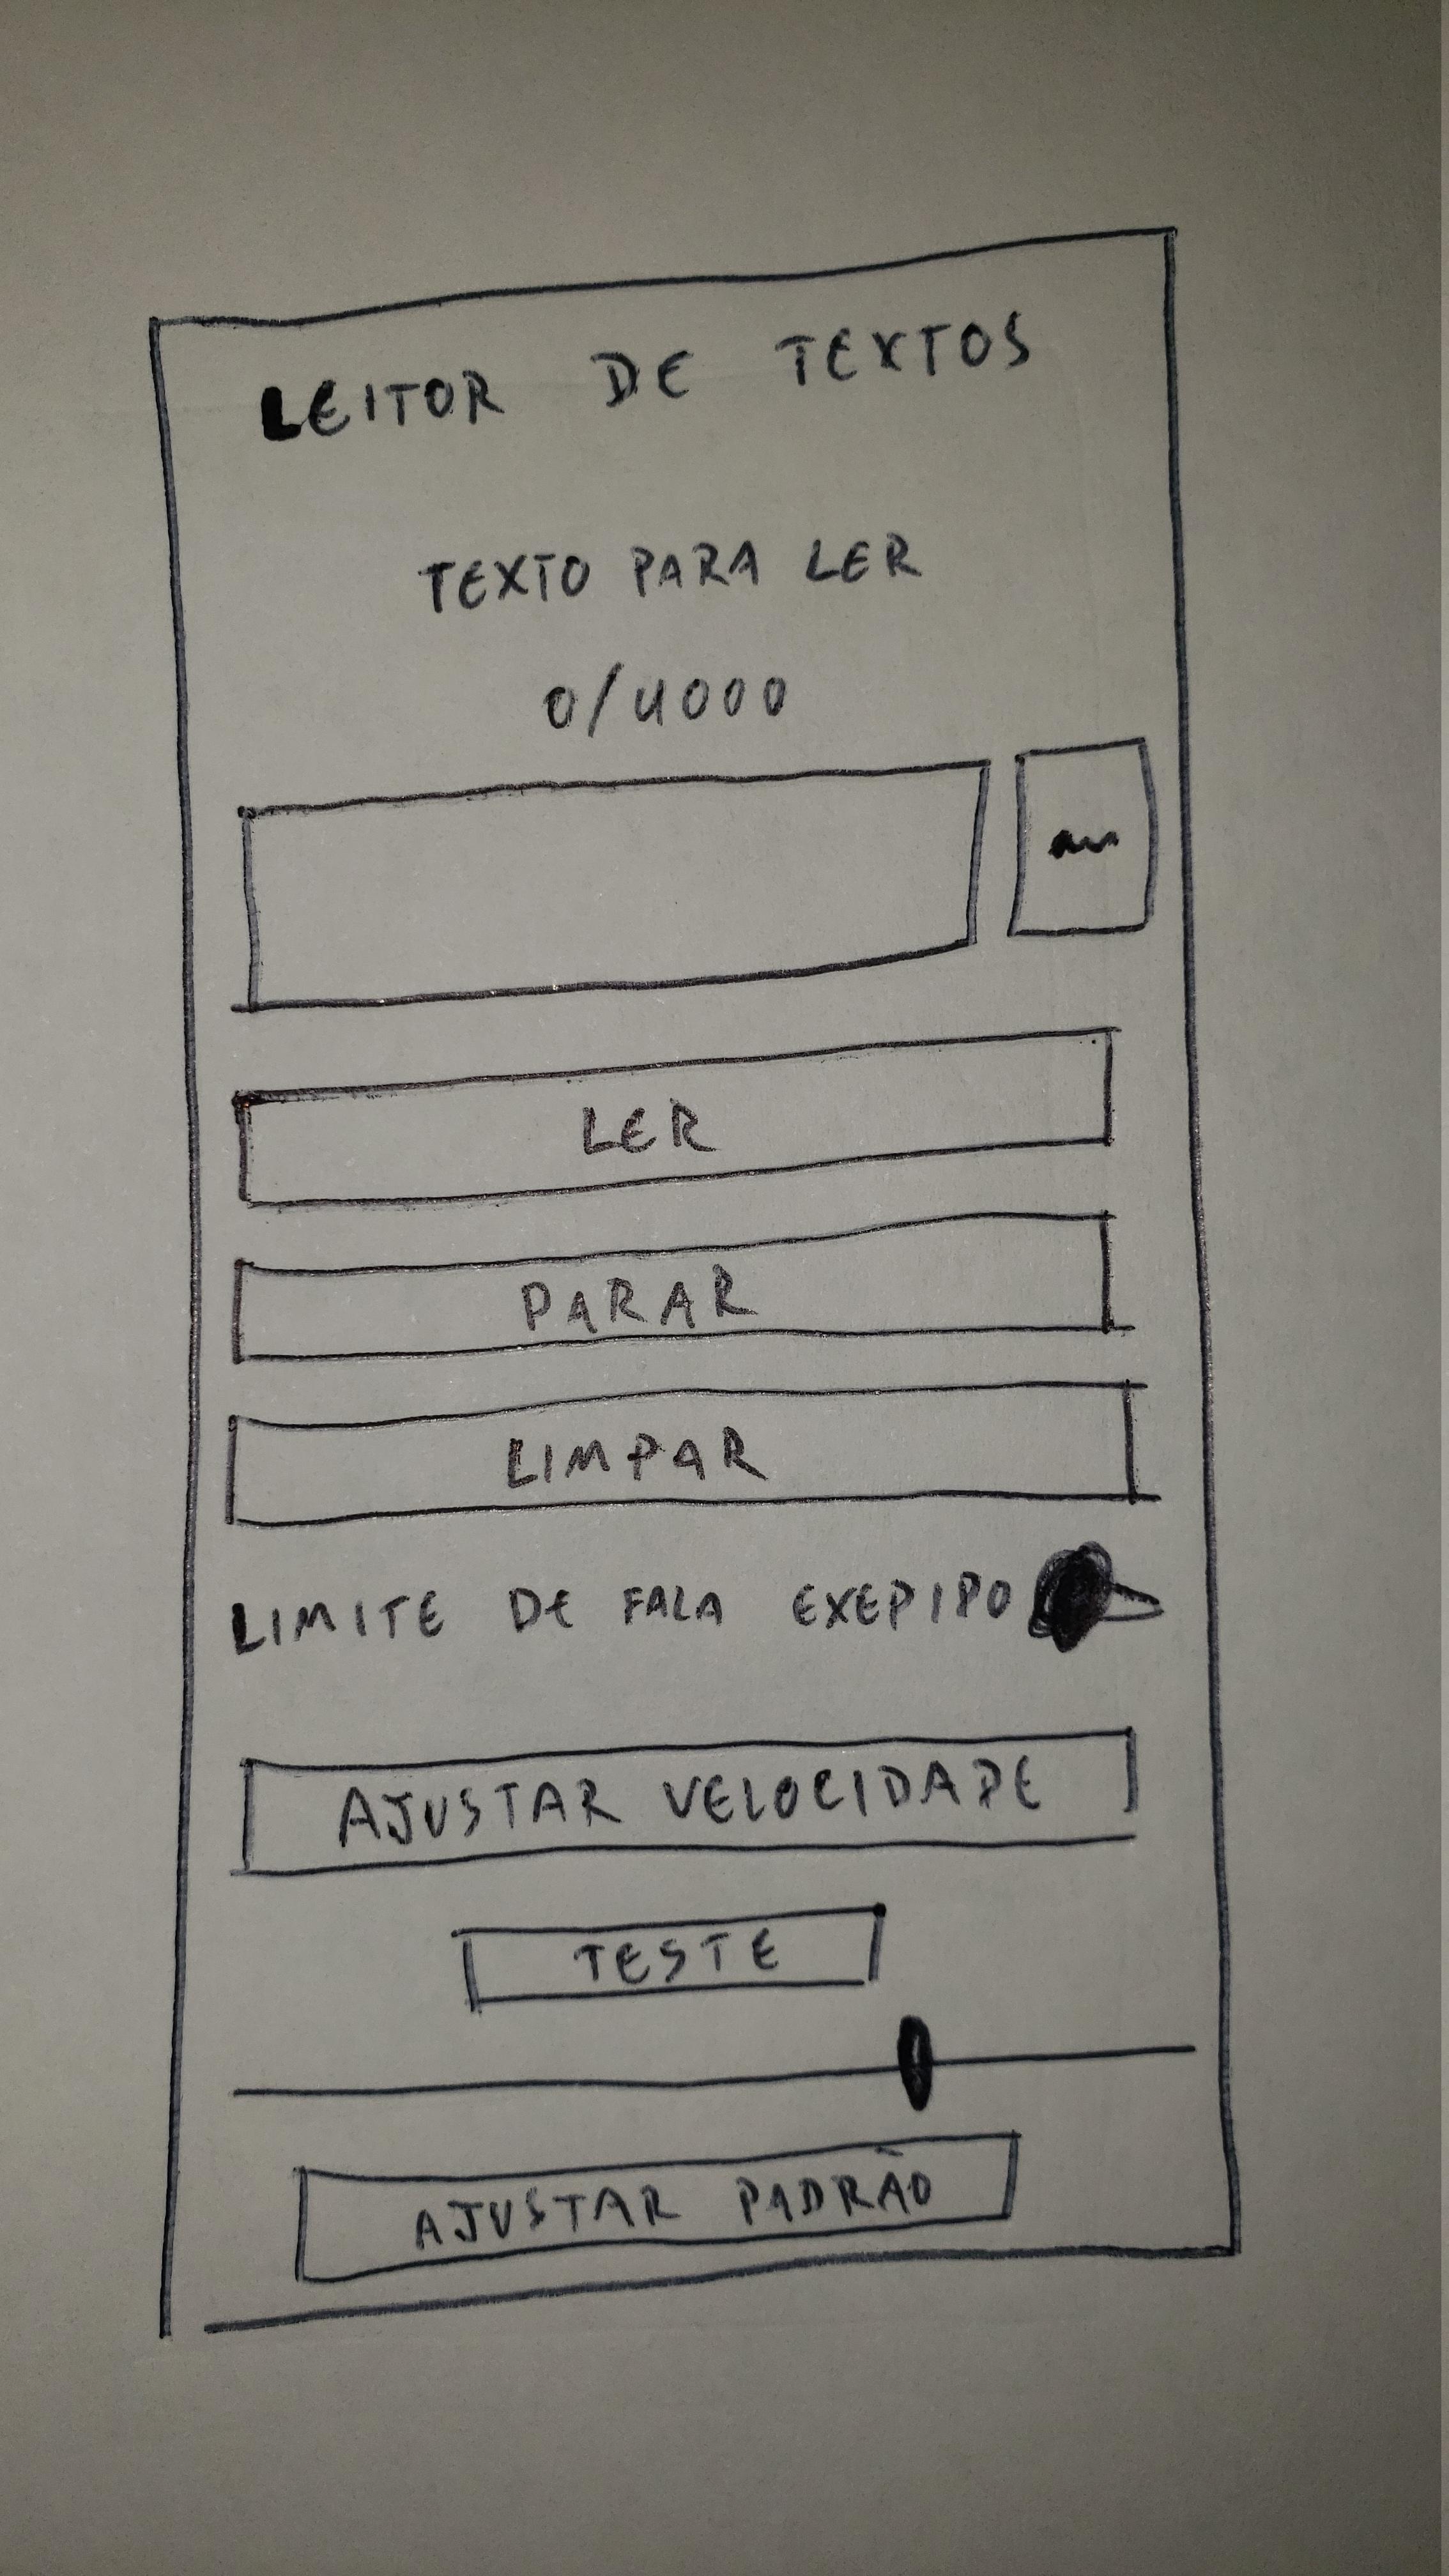 LEITOR DE TEXTOS
TEXTO PARA LER
0/4000
LER
PARAR
LIMPAR
LIMITE DE FALA EXEPIPO
AJUSTAR VELOCIDADE
TESTE
AJUSTAR PADRÃO